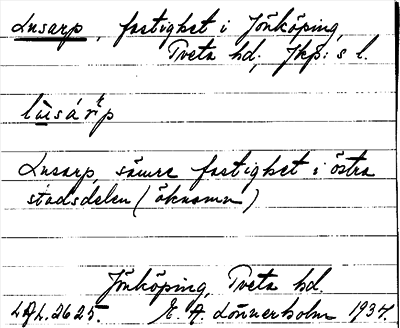 Lusarp, fastighet i Jönköping,
Tveta hd, Jkp:s l.
Lusarp, sämre fastighet i östra
stadsdelen (öknamn)
Jönköping, Tveta hd.
LAL. 2625. E. A. Lönnerholm 1934.